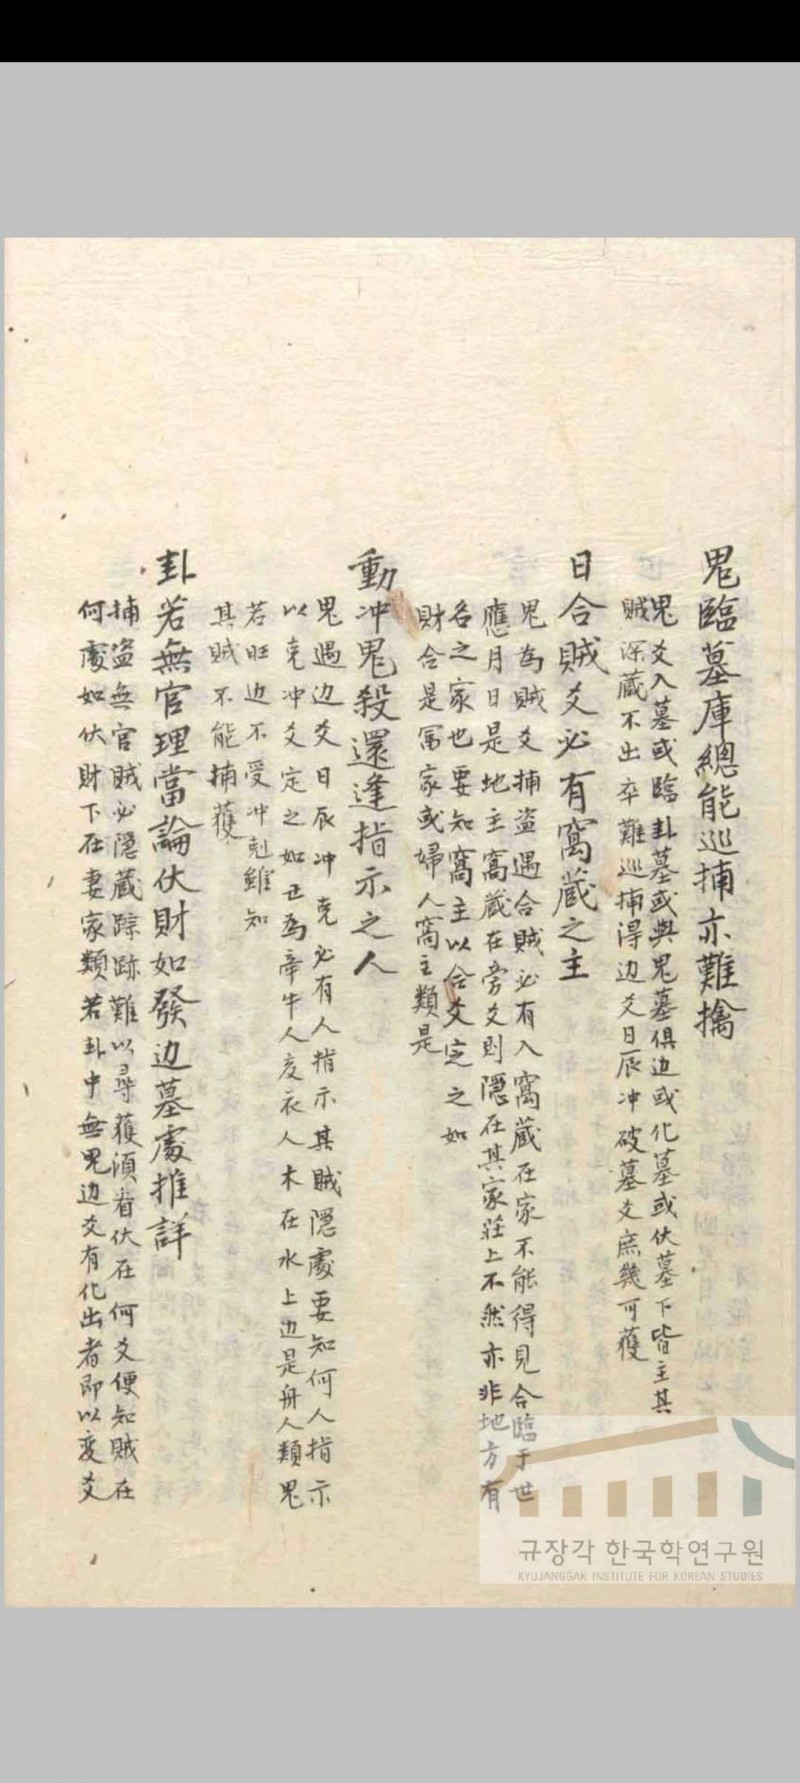 鬼臨墓庫總能巡捕亦難擒
鬼爻入墓或臨卦墓或與鬼墓俱边或化墓或伏墓下皆主其
賊深藏不出卒難巡捕得边爻日辰冲破墓爻庶幾可獲
日合賊爻必有窩藏之主
鬼為賊爻捕盗遇合賊必有入窩藏在家不能得見合臨于世
應月日是地主窩藏在旁爻則隱在其家莊上不然亦非地方有
名之家也要知窩主以合爻定之如
財合是冨家或婦人窩主類是
動冲鬼殺還逢指示之人
鬼遇边爻日辰冲克必有人指示其賊隱處要知何人指示
以克冲爻定之如丑為牽牛人亥衣人木在水上边是舟人類鬼
若旺边不受冲剋雖知
其賊不能捕獲
卦若無官理當論伏財如發边墓處推詳
捕盗無官賊必隱藏踪跡難以尋獲須看伏在何爻便知賊在
何處如伏財下在妻家類若卦中無鬼边爻有化出者即以変爻
규장각 한국학연구원
KYUJANGGAK INSTITUTE FOR KOREAN STUDIES